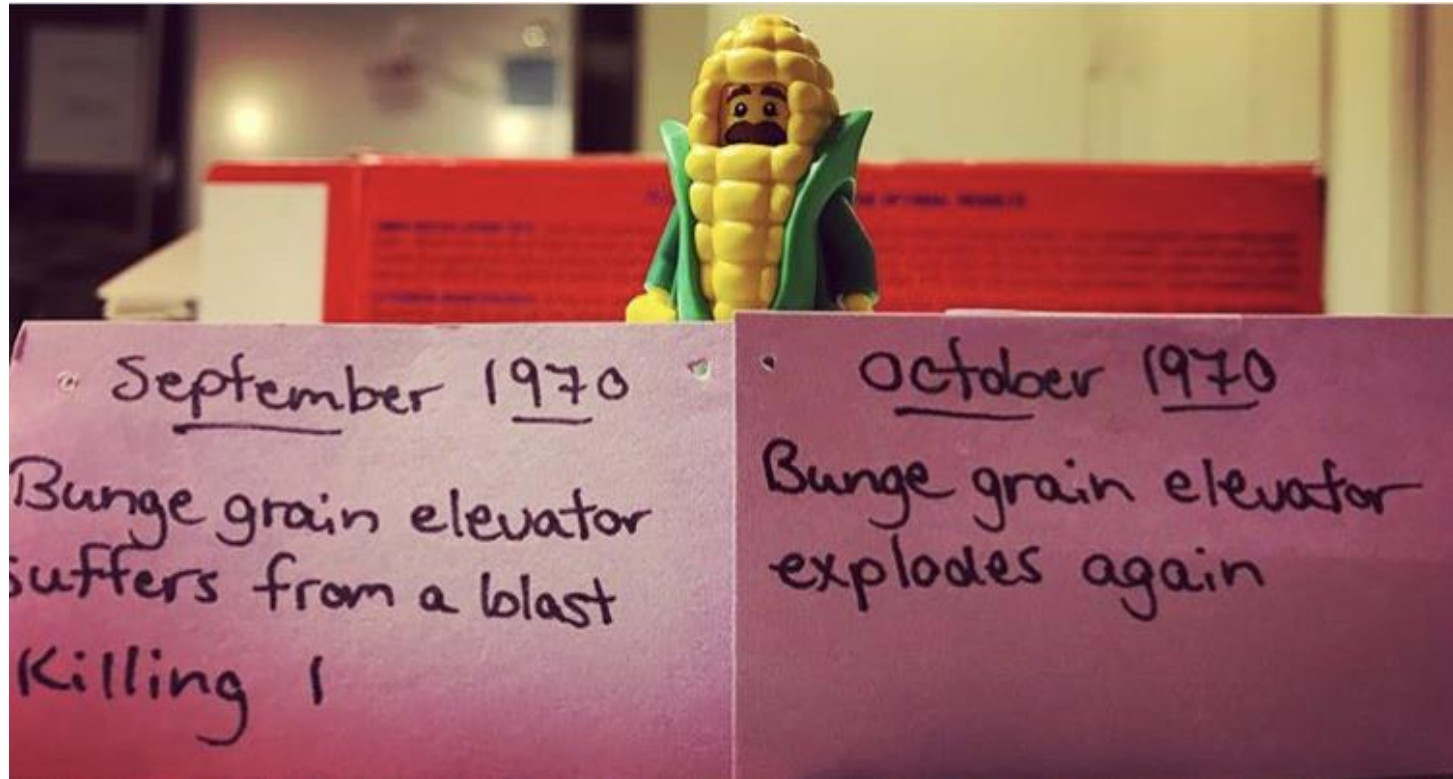 September 1970
Bunge grain elevator
suffers from a blast
Killing 1
October 1970
Bunge grain elevator
explodes again